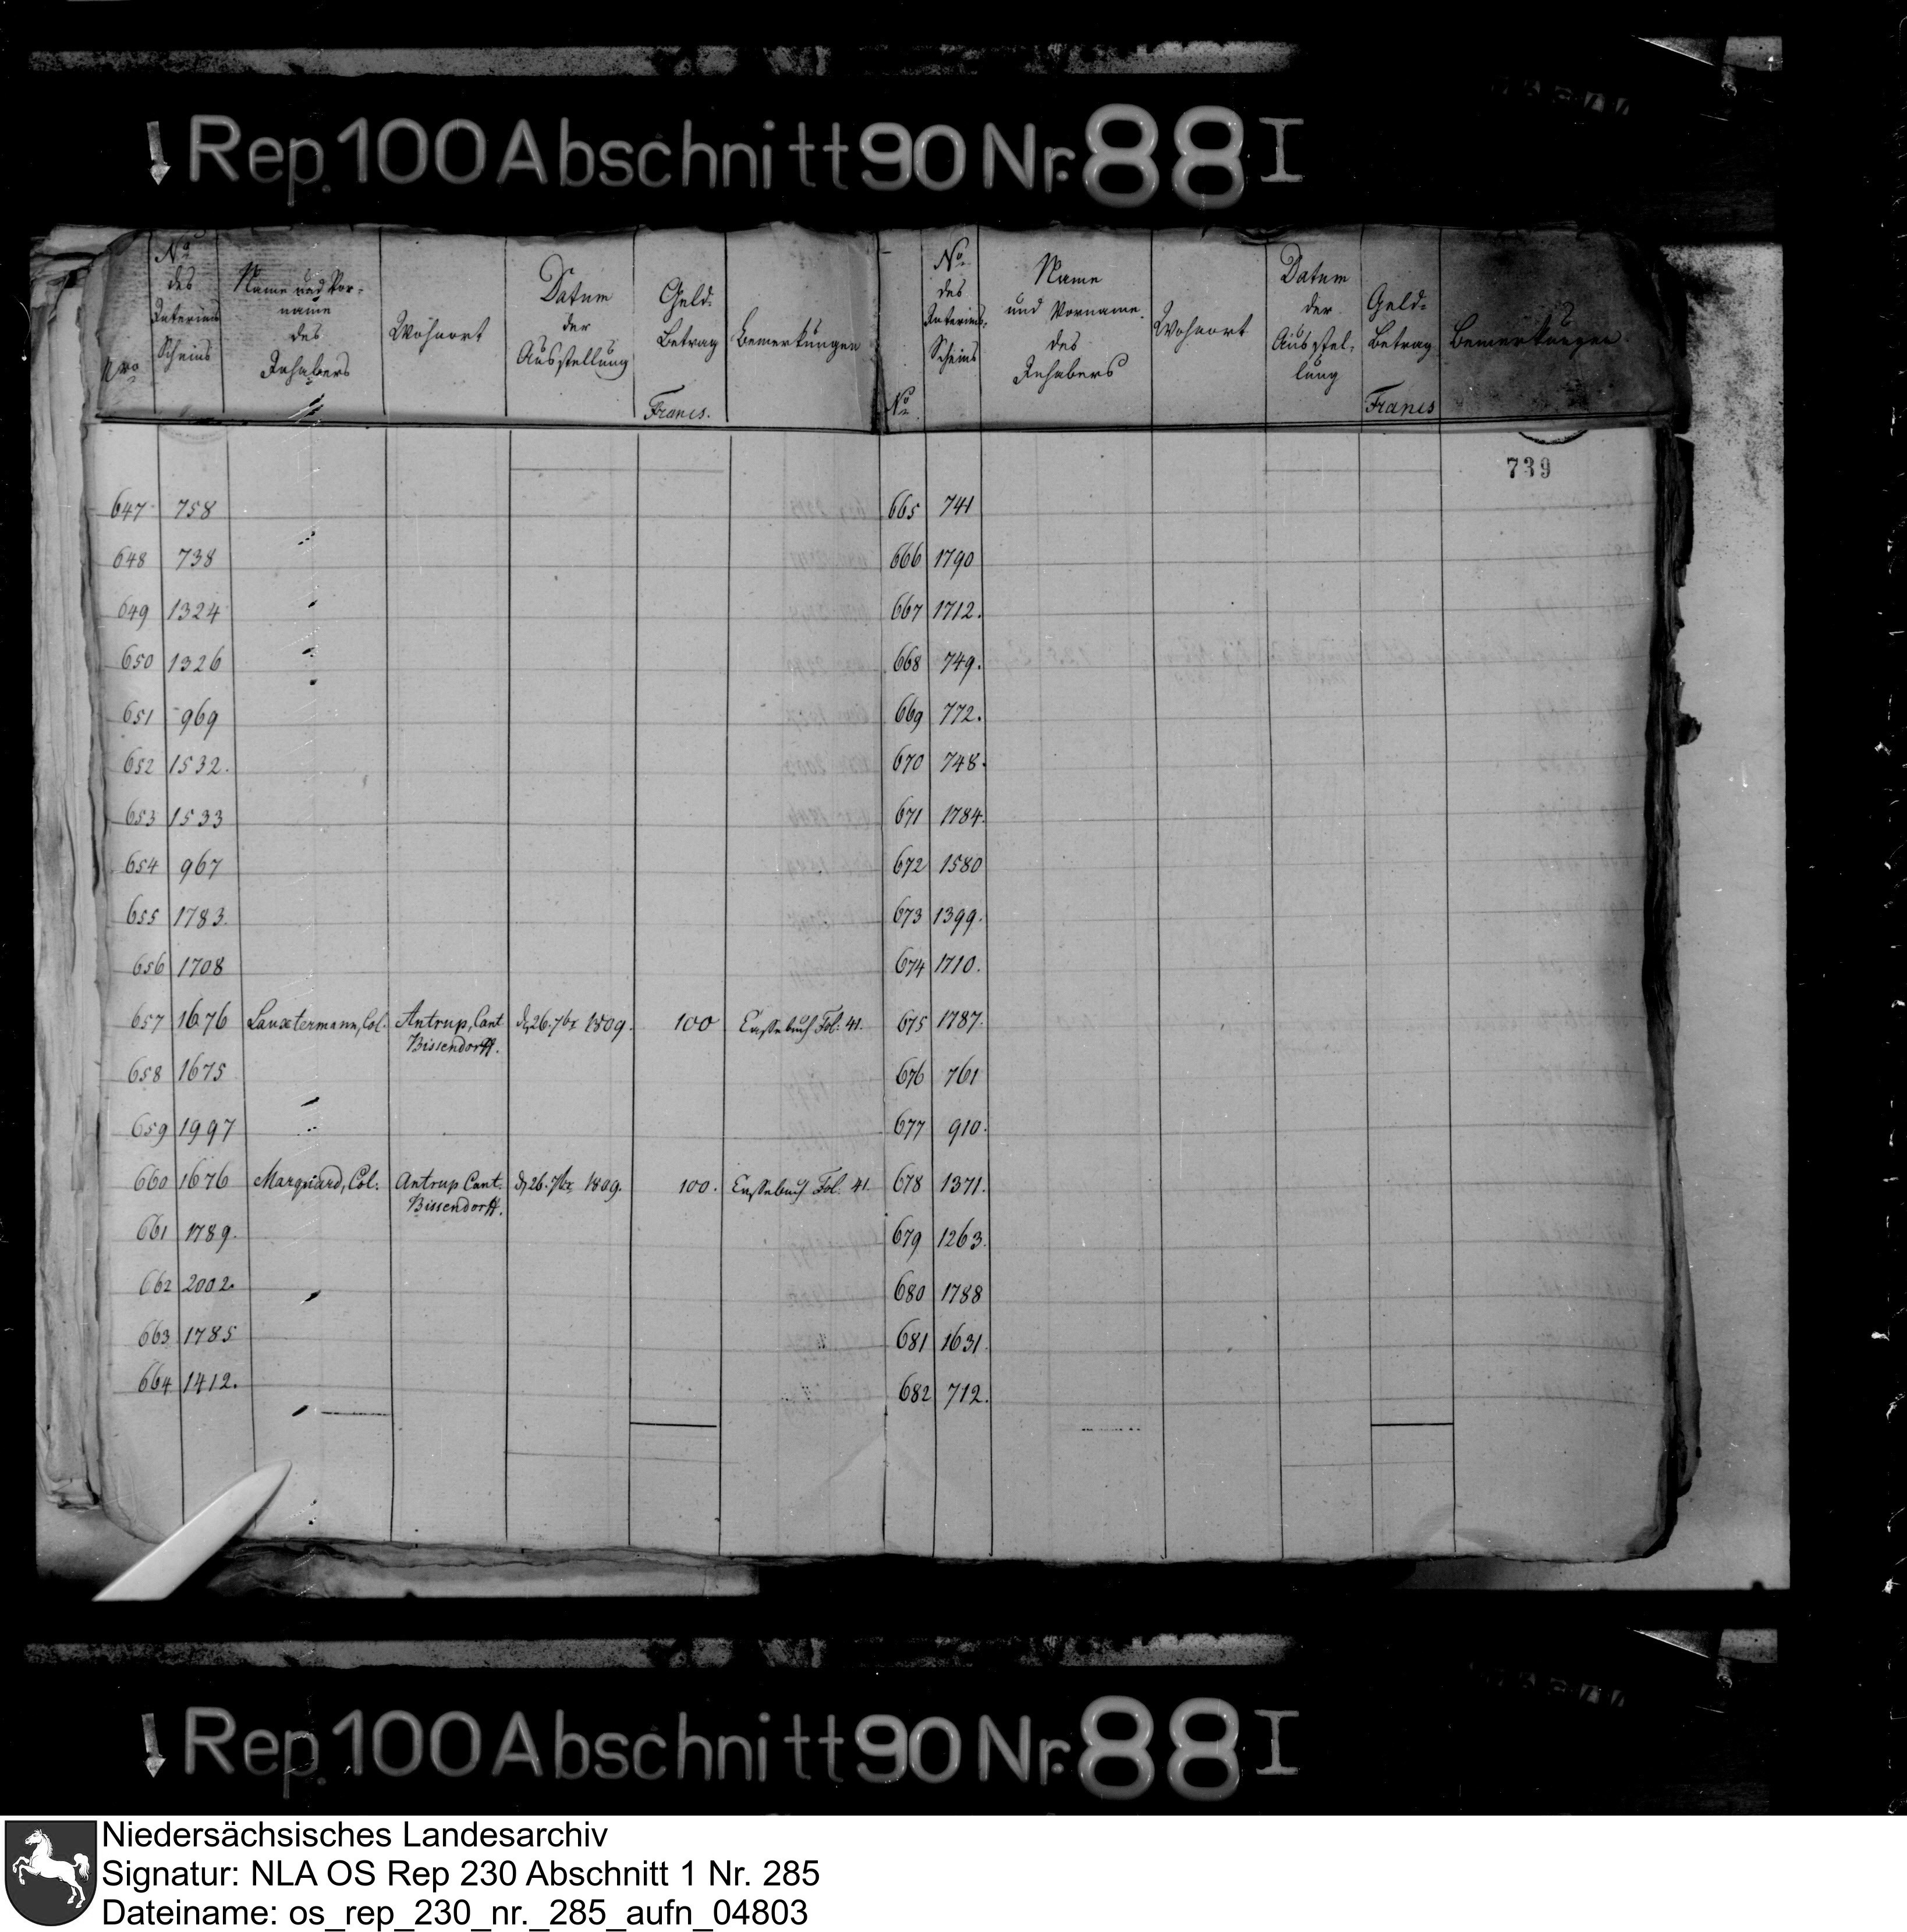 Rep. 100 Abschnitt 90 Nr. 88 I
Nro
No des Interims Scheins
Name und Vorname des Inhabers
Wohnort
Datum der Ausstellung
Geld-Betrag Francs.
Bemerkungen
No
No des Interims-Scheins
Name und Vorname des Inhabers
Wohnort
Datum der Ausstellung
Geld-Betrag Francs
Bemerkungen
739
647 758
648 738
649 1324
650 1326
651 969
652 1532.
653 1533
654 967
655 1783.
656 1708
657 1676 Lanxtermann, Col. Antrup, Cant Bissendorff. d. 26. 7br 1809. 100 Fol. 41.
658 1675
659 1997
660 1676 Marquard, Col. Antrup Cant. Bissendorff. d. 26. 7br 1809. 100. Fol. 41.
661 1789.
662 2002.
663 1785
664 1412.
665 741
666 1790
667 1712.
668 749.
669 772.
670 748.
671 1784.
672 1580
673 1399.
674 1710.
675 1787.
676 761
677 910.
678 1371.
679 1263.
680 1788
681 1631.
682 712.
Rep. 100 Abschnitt 90 Nr. 88 I
Niedersächsisches Landesarchiv
Signatur: NLA OS Rep 230 Abschnitt 1 Nr. 285
Dateiname: os_rep_230_nr._285_aufn_04803